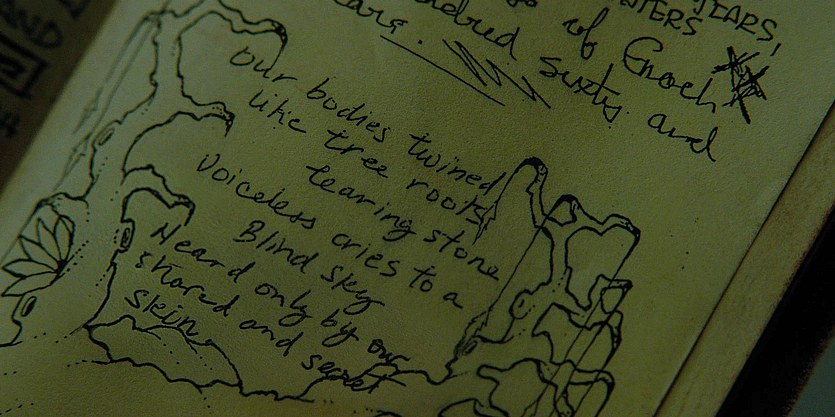 YEARS,
of Enoch
sixty and
our bodies twined
like tree roots
tearing stone
Voiceless cries to a
Blind sky
Heard only by our
shared and secret
skin.